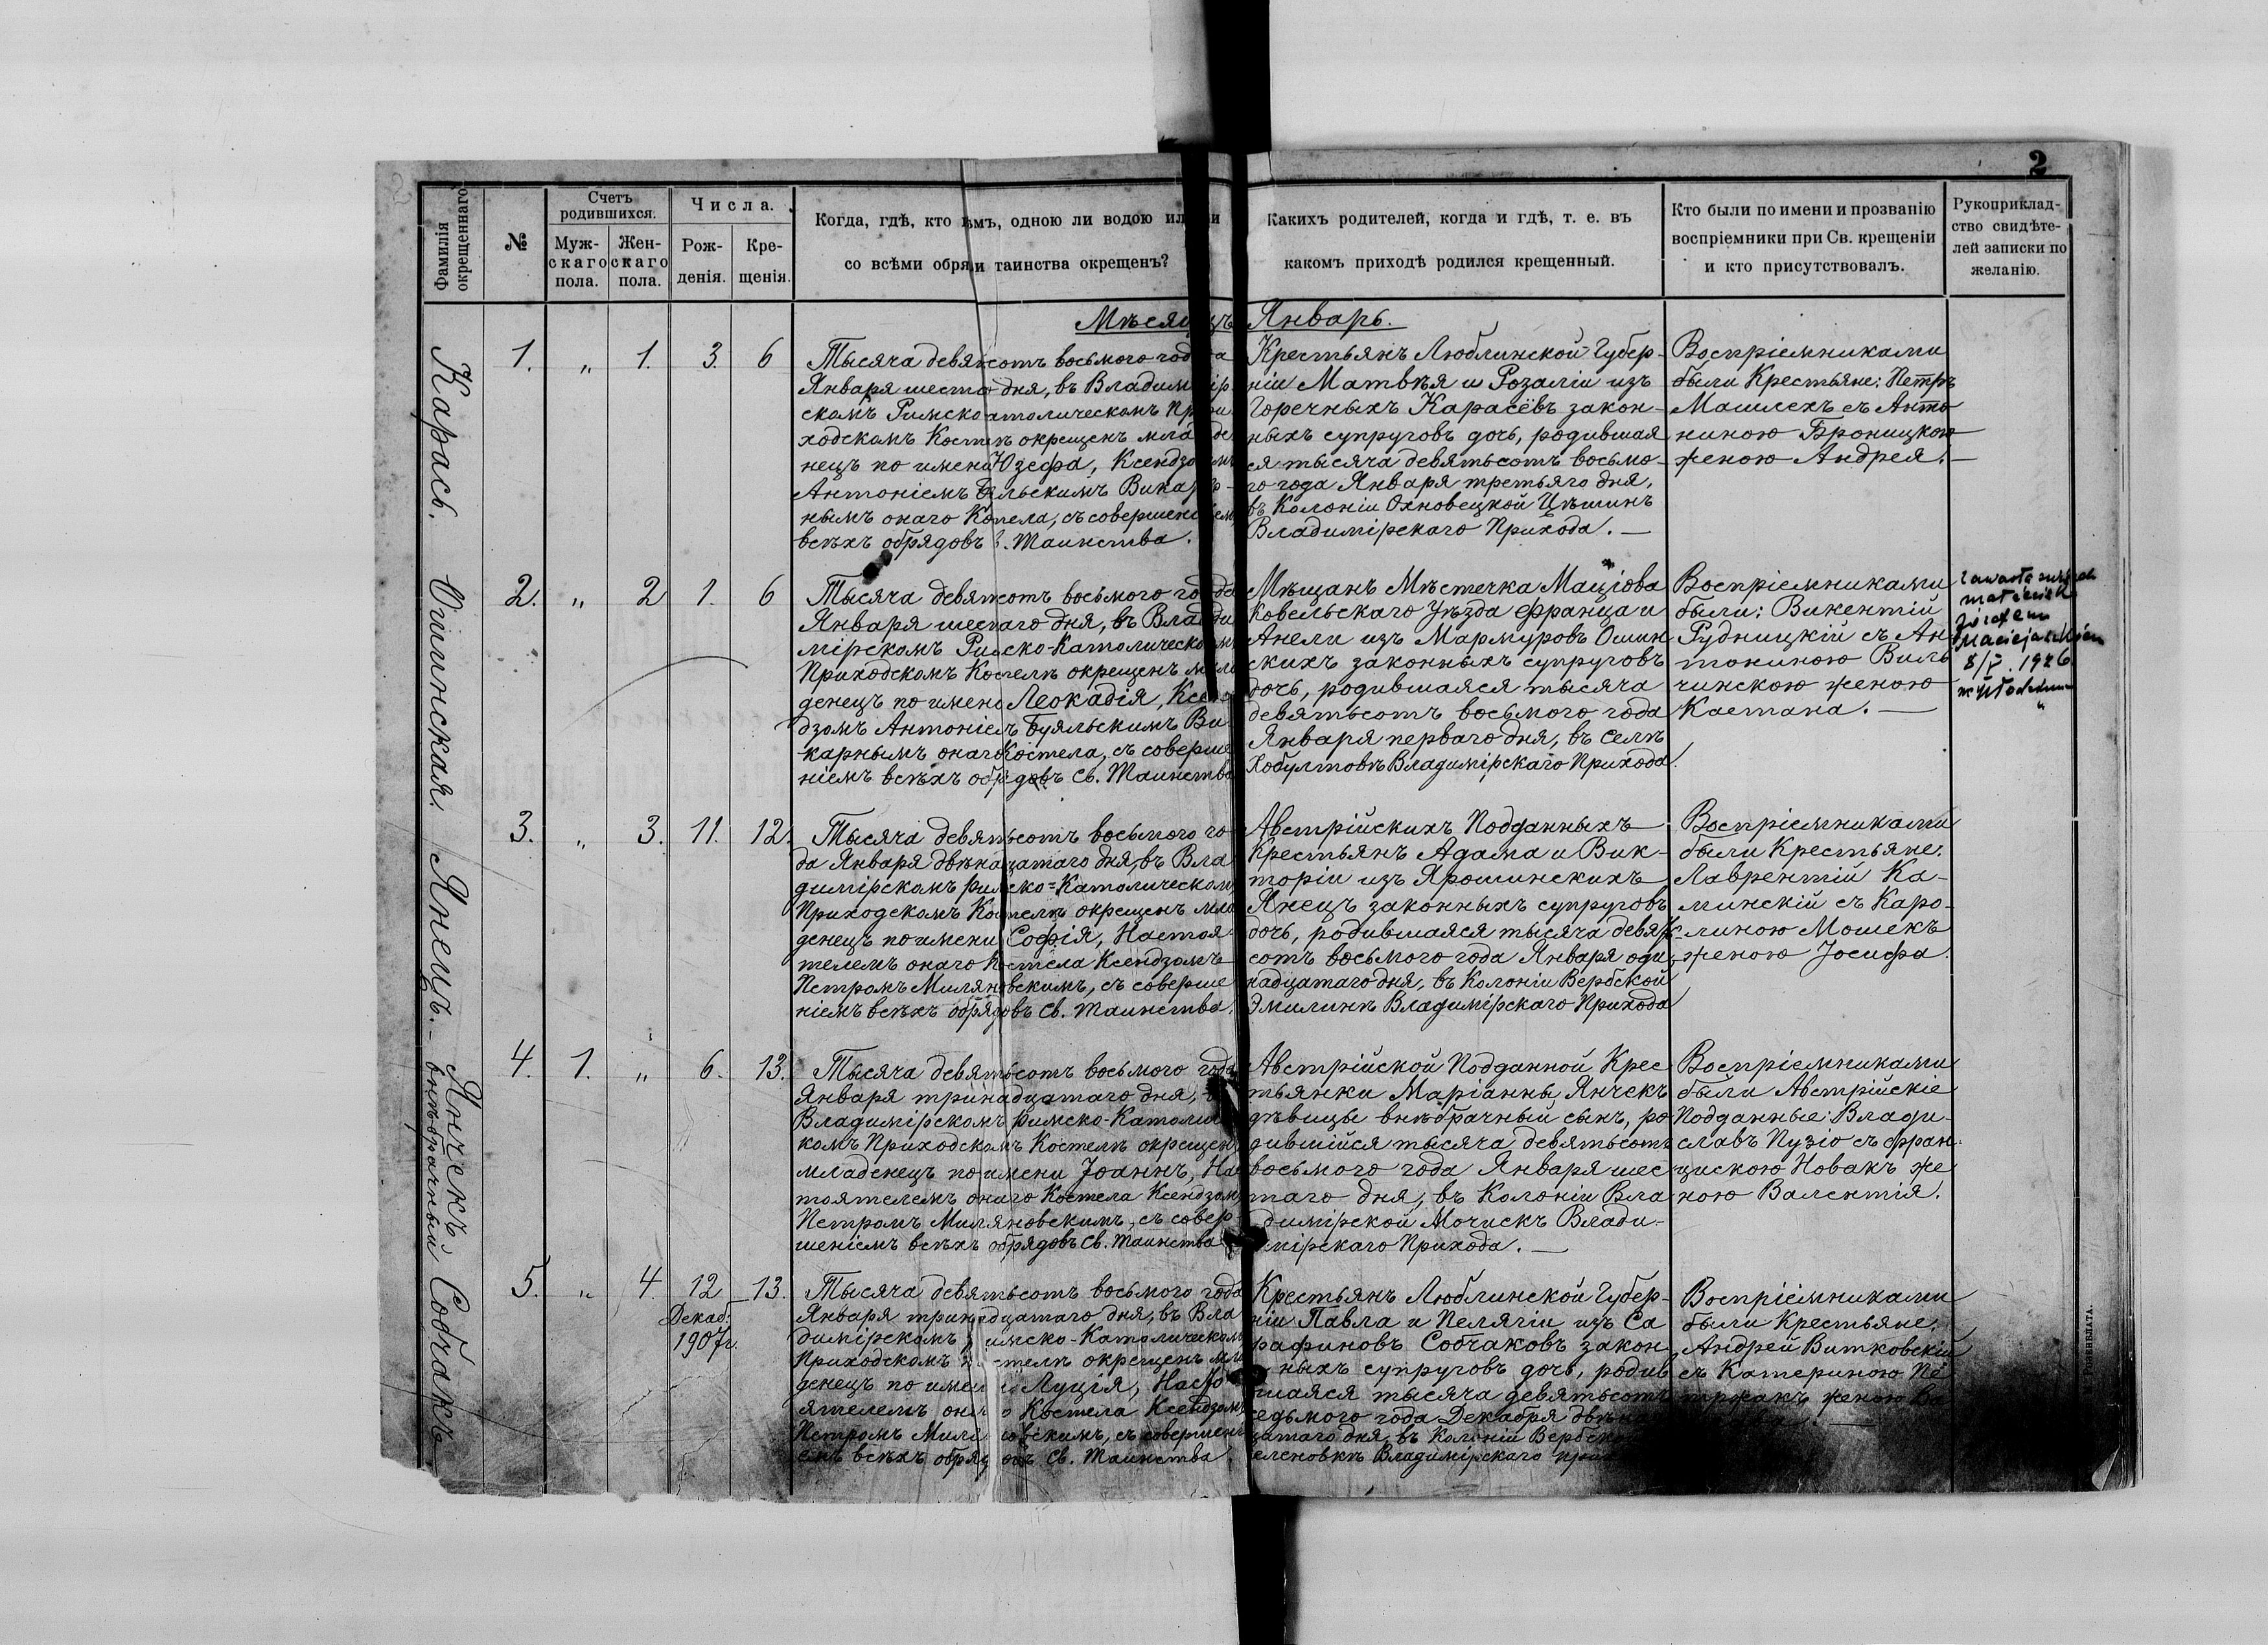 2
Фамилія окрещеннаго
№
Счетъ родившихся.
Муж-
скаго
пола.
Жен-
скаго
пола.
Числа.
Рож-
денія.
Кре-
щенія.
Когда, гдѣ, кто
ѣмъ, одною ли водою
со всѣми
таинства окрещенъ?
Какихъ родителей, когда и гдѣ, т. е. въ
какомъ приходѣ родился крещенный.
Кто были по имени и прозванію
воспріемники при Св. крещеніи
и кто присутствовалъ.
Рукоприклад-
ство свидѣте-
лей записки по
желанію.
Мѣсяцъ Январь.
Карась.
1. " 1. 3. 6
Тысяча девятсотъ восьмого года
Января шесто дня, въ Владимір
скомъ Римско атолическомъ При
ходскомъ Костелѣ окрещенъ младе
нецъ по имени Юзефа, Ксендзомъ
Антоніемъ Буяльскимъ Викар
нымъ онаго Костела, съ совершеніем
всѣхъ обрядовъ в. Таинства.
Крестьянъ Люблинской Губер-
ніи Матвѣя и Розаліи изъ
Горечныхъ Карасёвъ закон-
ныхъ супруговъ дочь, родившая
ся тысяча девятьсотъ восьмо-
го года Января третьяго дня,
въ Колоніи Охновецкой Цѣшинъ
Владимірскаго Прихода. —
Воспріемниками
были Крестьяне: Петръ
Машлехъ съ Анто
ниною Броницкою
женою Андрея. —
Ошинская.
2. " 2 1. 6
Тысяча девятсотъ восьмого года
Января шестаго дня, въ Влади
мірскомъ Римско-Католическомъ
Приходскомъ Костелѣ окрещенъ мла
денецъ по имени Леокадія, Ксен
дзомъ Антоніемъ Буяльскимъ Ви
карнымъ онаго Костела, съ соверше
ніемъ всѣхъ обрядовъ Св. Таинства
Мѣщанъ Мѣстечка Маціова
Ковельскаго Уѣзда Франца и
Анели изъ Мармуровъ Ошин
скихъ законныхъ супруговъ
дочь, родившаяся тысяча
девятьсотъ восьмого года
Января перваго дня, въ селѣ
Хобултовѣ Владимірскаго Прихода.
Воспріемниками
были: Викентій
Рудницкій съ Ан
тониною Виль
чинскою женою
Каетана. —
8/V. 1926
Янецъ. —
3. " 3. 11. 12.
Тысяча девятьсотъ восьмого го-
да Января двѣнадцатаго дня, въ Вла
димірскомъ Римско-Католическомъ
Приходскомъ Костелѣ окрещенъ мла
денецъ по имени Софія, Настоя
телемъ онаго Костела Ксендзомъ
Петромъ Миляновскимъ, съ соверше
ніемъ всѣхъ обрядовъ Св. Таинства.
Австрійскихъ Подданныхъ
Крестьянъ Адама и Вик-
торіи изъ Ярошинскихъ
Янецъ законныхъ супруговъ
дочь, родившаяся тысяча девять-
сотъ восьмого года Января оди
надцатаго дня, въ Колоніи Вербской
Эмилинѣ Владимірскаго Прихода
Воспріемниками
были Крестьяне:
Лаврентій Ка-
минскій съ Каро-
линою Мошекъ
женою Іосифа.
Янчекъ
внѣбрачный
4. 1. " 6. 13.
Тысяча девятьсотъ восьмого года
Января тринадцатаго дня,
Владимірскомъ Римско-Католи
комъ Приходскомъ Костелѣ окрещенъ
младенецъ по имени Іоаннъ, Нас
тоятелемъ онаго Костела Ксендзом
Петромъ Миляновскимъ, съ совер-
шеніемъ всѣхъ обрядовъ Св. Таинства
Австрійской Подданной Крес
тьянки Маріанны Янчекъ
дѣвицы внѣбрачный сынъ, ро-
дившійся тысяча девятьсотъ
восьмого года Января шес
таго дня, въ Колоніи Вла
димірской Мочискъ Влади-
мірскаго Прихода. —
Воспріемниками
были Австрійскіе
Подданные: Влади-
славъ Пузіо съ Фран-
цискою Новакъ же
ною Валентія.
Собчакъ
5. " 4. 12 13.
Декаб.
1907г.
Тысяча девятьсотъ восьмого года
Января тринадцатаго дня, въ Вла
димірскомъ имско-Католическом
Приходскомъ стелѣ окрещенъ мла
денецъ по имени Луція, Насто
ятелемъ она о Костела Ксендзомъ
Петромъ Миля овскимъ, съ совершен
емъ всѣхъ обряд овъ Св. Таинства.
Крестьянъ Люблинской Губер-
ніи Павла и Пелагіи изъ Са
рафиновъ Собчаковъ закон
ныхъ супруговъ дочь, родив
шаяся тысяча девятьсотъ
седьмого года Декабря двѣна
цатаго дня, въ Колоніи Вербской
еленовкѣ Владимірскаго при
Воспріемниками
были Крестьяне:
Андрей Витковскій
съ Катериною Пе
тржакъ женою